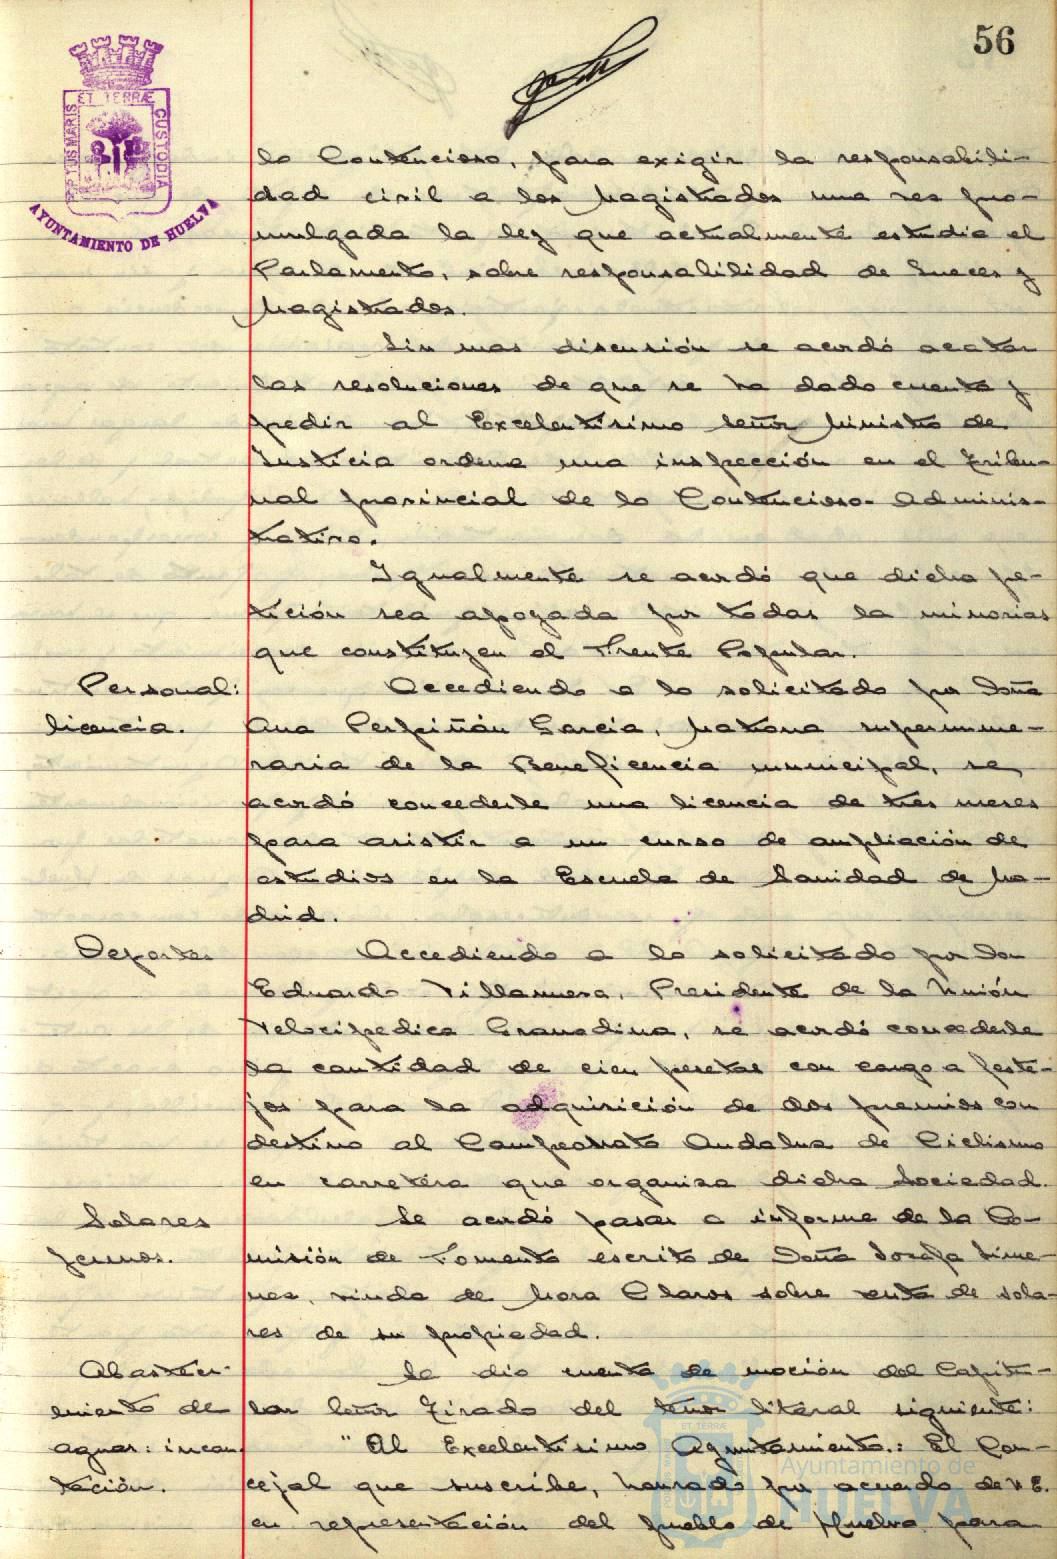 56
ET TERRÆ
CUSTODIA
PORTUS MARIS
AYUNTAMIENTO DE HUELVA
lo Contencioso, para exigir la responsabili-
dad civil a los Magistrados una vez pro-
mulgada la ley que actualmente estudia el
Parlamento, sobre responsabilidad de Jueces y
Magistrados.
Sin mas discusión se acordó acatar
las resoluciones de que se ha dado cuenta y
pedir al Excelentísimo Señor Ministro de
Justicia ordene una inspección en el Tribu-
nal provincial de lo Contencioso-Adminis-
trativo.
Igualmente se acordó que dicha pe-
tición sea apoyada por todas la minorias
que constituyen el Frente Popular.
Personal:
licencia.
Accediendo a lo solicitado por Doña
Ana Perpiñán García, Matrona supernume-
raria de la Beneficencia municipal, se
acordó concederle una licencia de tres meses
para asistir a un curso de ampliación de
estudios en la Escuela de Sanidad de Ma-
drid.
Deportes
Accediendo a lo solicitado por Don
Eduardo Villanueva, Presidente de la Unión
Velocipedica Granadina, se acordó concederle
la cantidad de cien pesetas con cargo a feste-
jos para la adquisición de dos premios con
destino al Campeonato Andaluz de Ciclismo
en carretera que organiza dicha Sociedad.
Solares
Se acordó pasar a informe de la Co-
misión de Fomento escrito de Doña Josefa Jime-
nez, viuda de Mora Claros sobre venta de sola-
res de su propiedad.
Abasteci-
miento de
aguas: incau-
tación.
Se dio cuenta de moción del Capitu-
lar Señor Tirado del tenor literal siguiente:
"Al Excelentísimo Ayuntamiento.: El Con-
cejal que suscribe, honrado por acuerdo de V.E.
en representación del pueblo de Huelva para
Ayuntamiento de
HUELVA